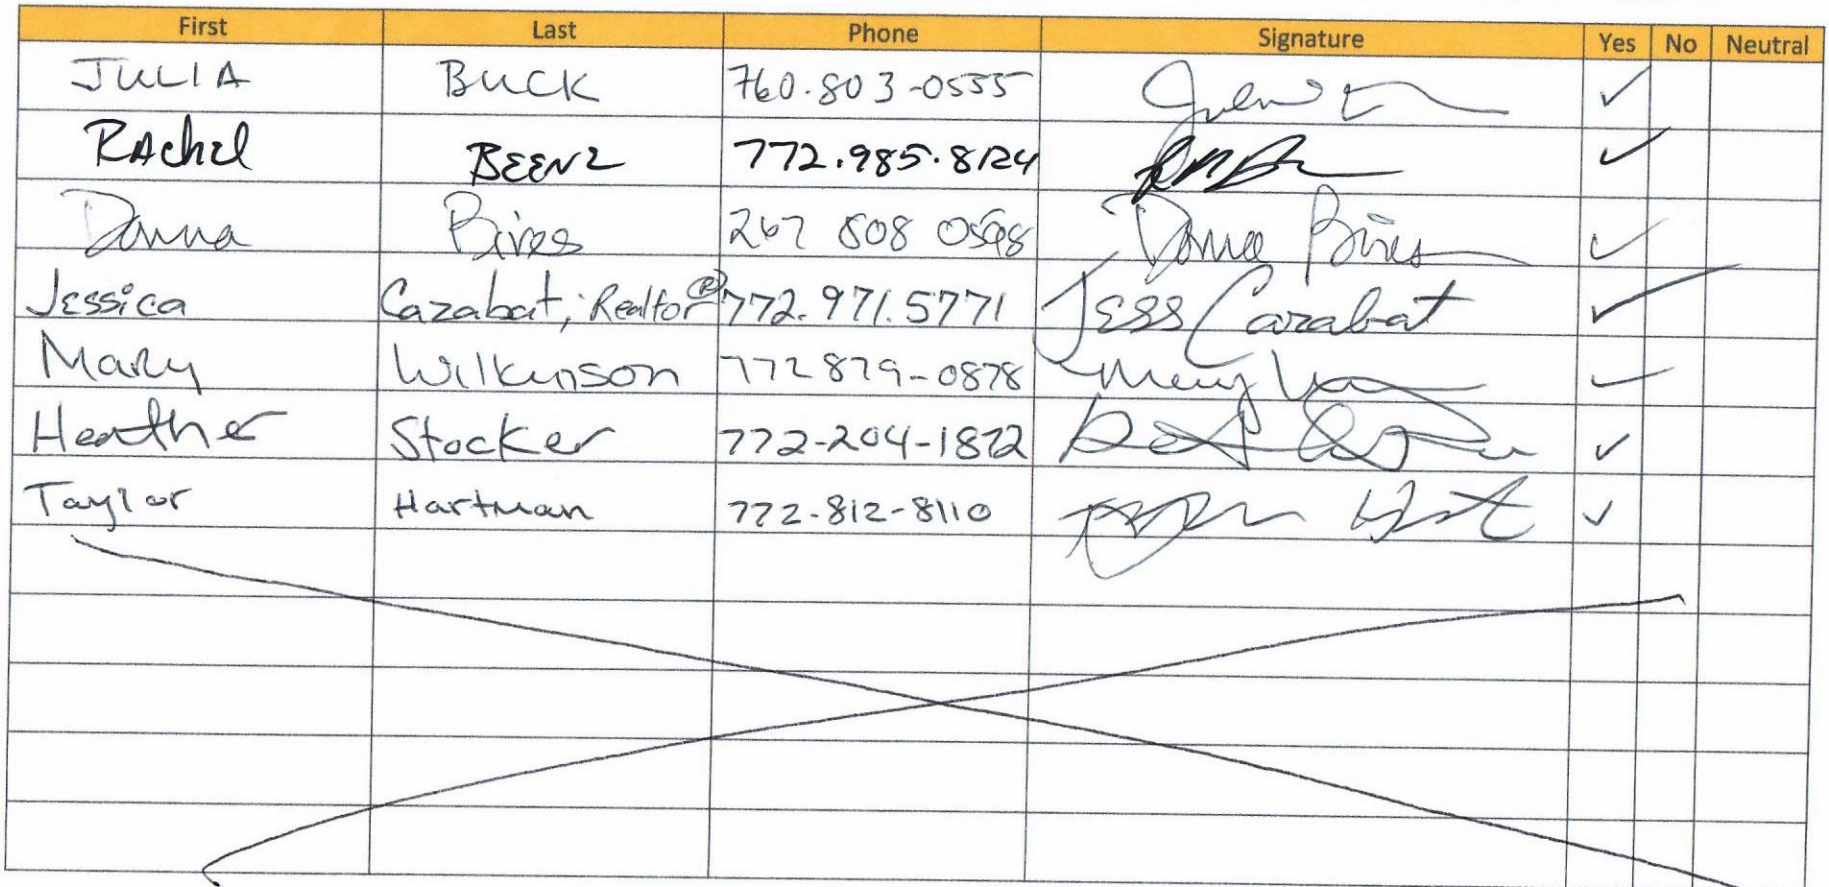 First Last Phone Signature Yes No Neutral
JULIA BUCK 760.803-0555 ✓
RAchel BEENZ 772.985.8124 ✓
Donna Bires 267 808 0598 Donna Bires ✓
Jessica Cazabat, Realtor® 772.971.5771 Jess Cazabat ✓
Mary Wilkinson 772 879-0878 Mary ✓
Heather Stocker 772-204-1872 ✓
Taylor Hartman 772-812-8110 ✓